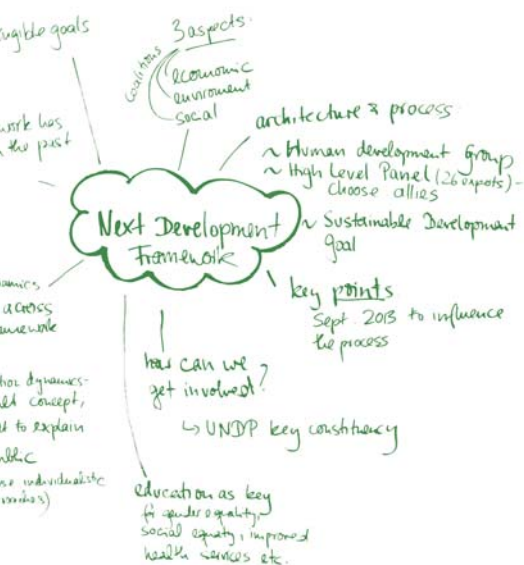 tangible goals
3 aspects.
coalitions
economic
enviroment
social
work has
n the past
architecture & process
~ Human development group
~ High Level Panel (26 expots) -
choose allies
~ Sustainable Development
goal
Next Development
Framework
key points
Sept. 2013 to influence
the process
namics
across
amework
how can we
get involved?
↳ UNDP key constituency
dynamics -
concept,
t to explain
ublic
individualistic
education as key
for gender equality,
social equity, improved
health services etc.